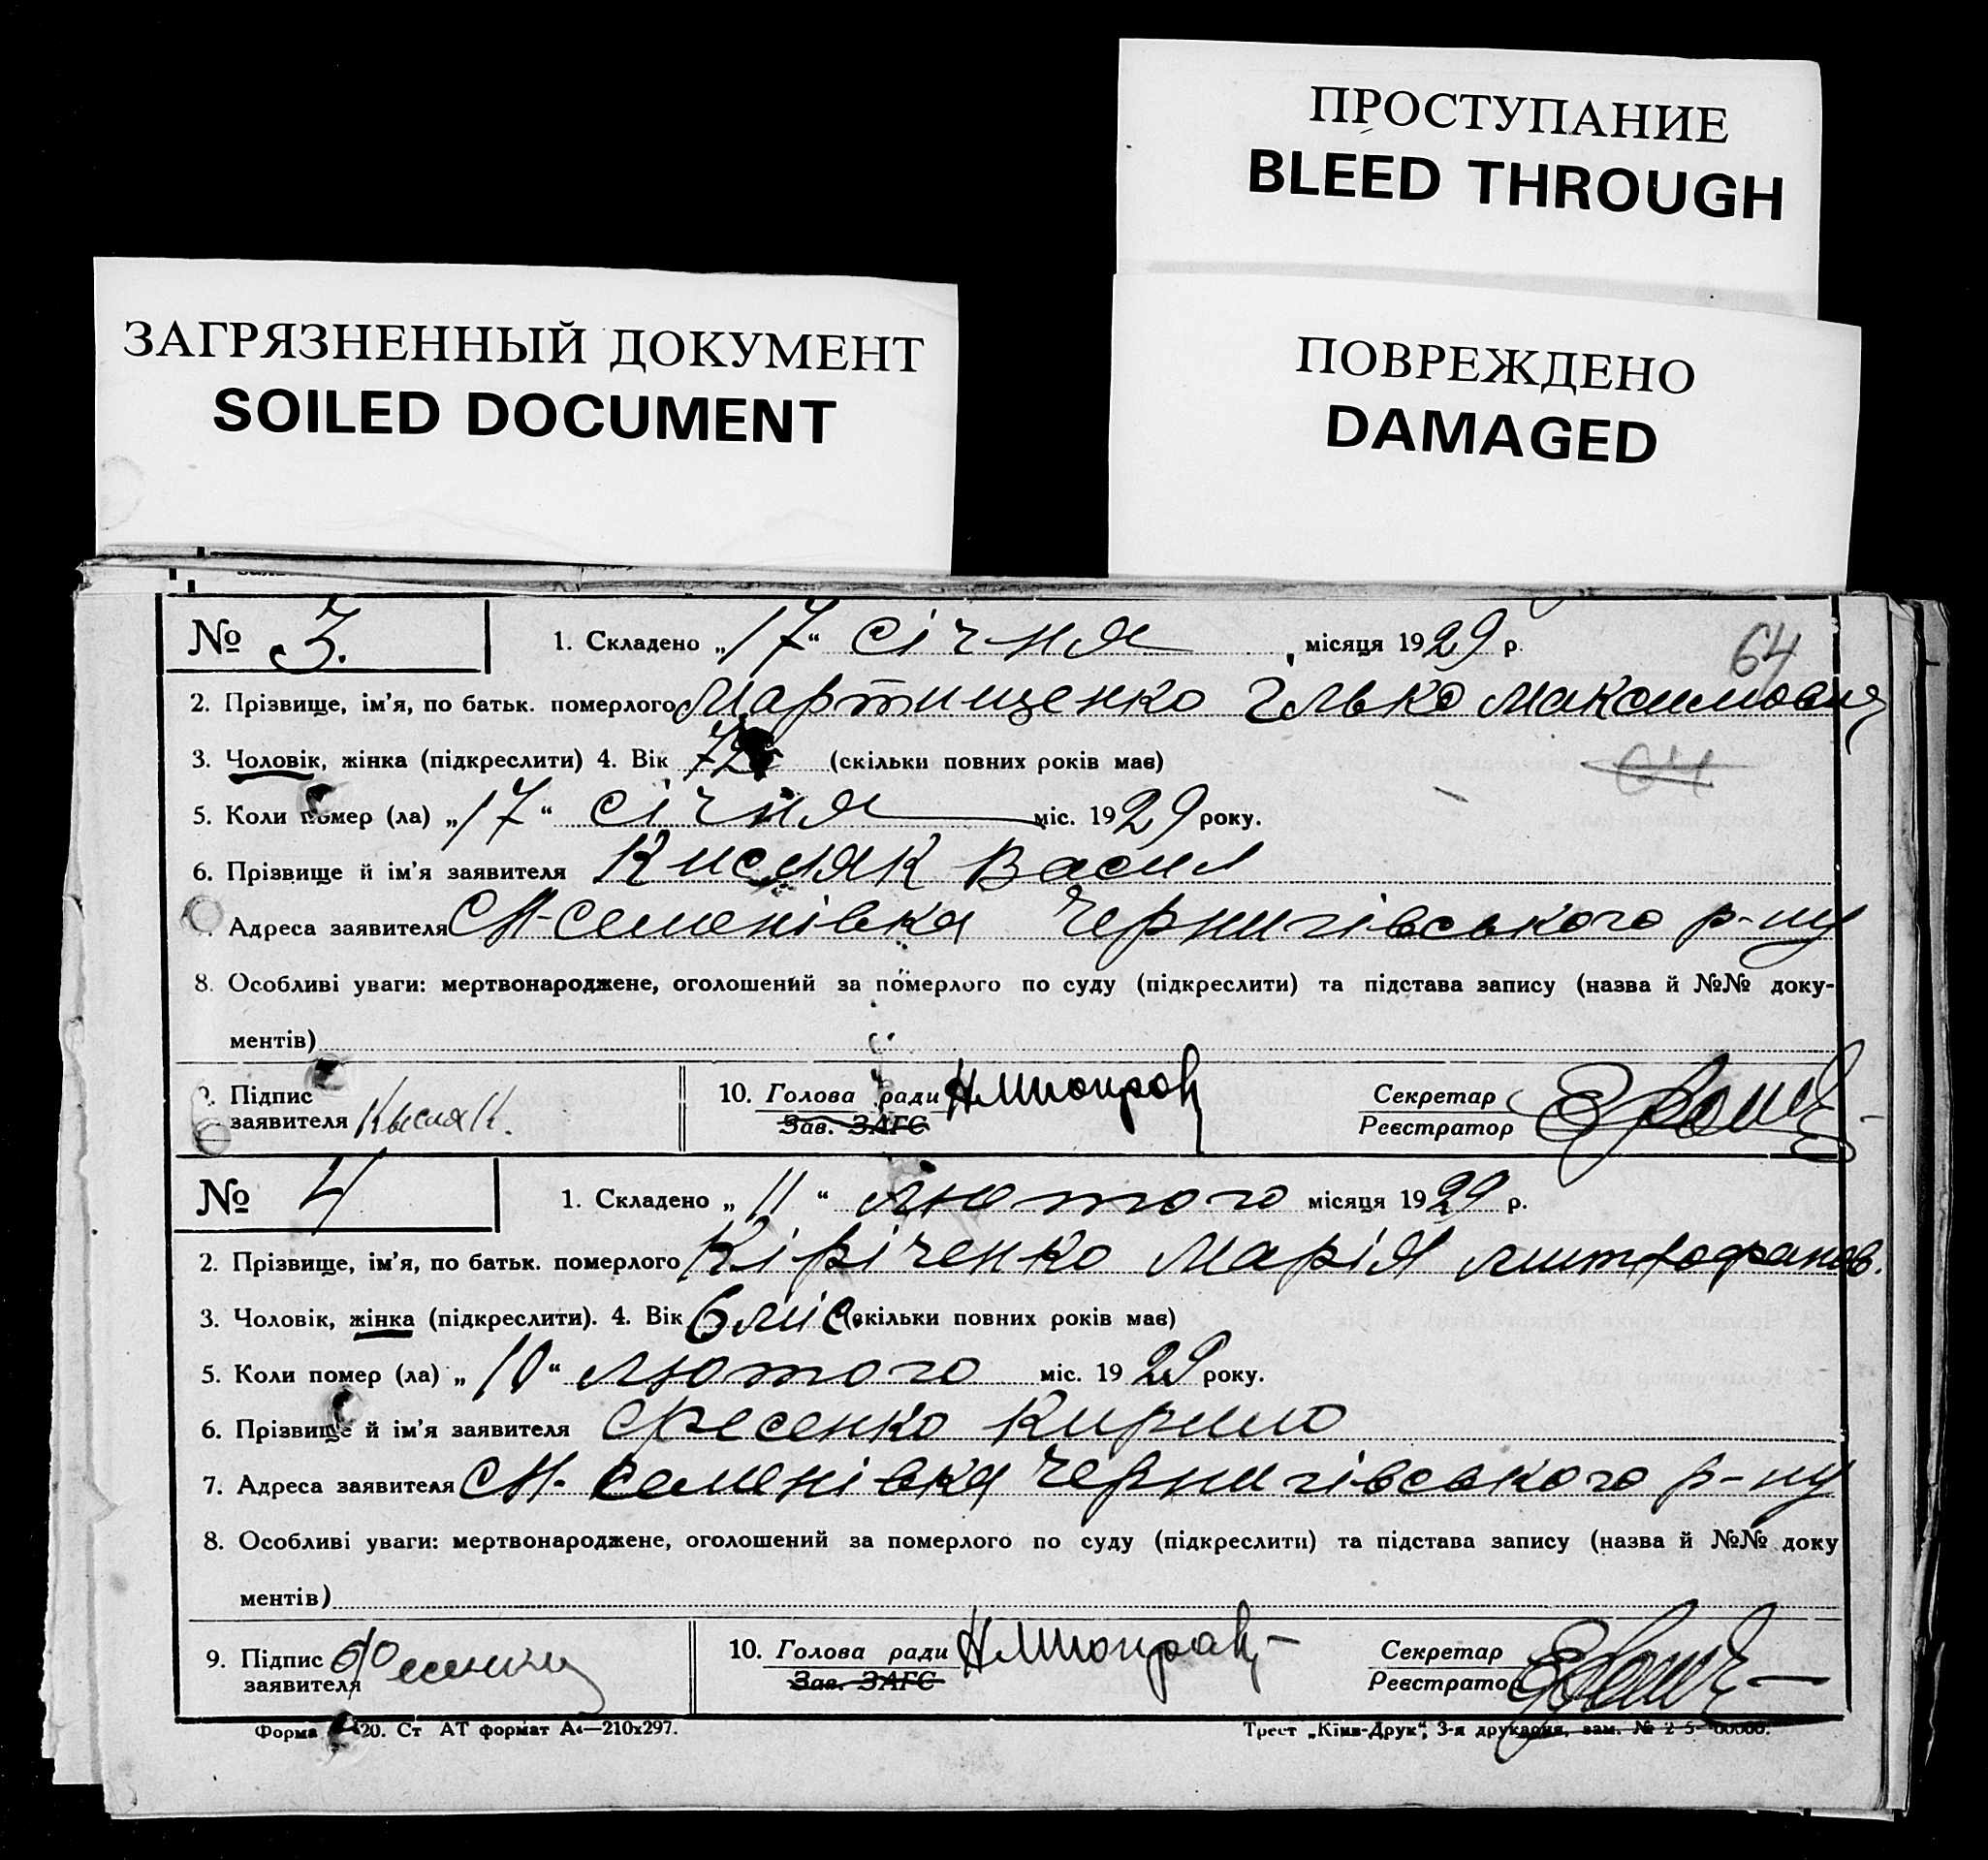 ПРОСТУПАНИЕ
BLEED THROUGH
ЗАГРЯЗНЕННЫЙ ДОКУМЕНТ
SOILED DOCUMENT
ПОВРЕЖДЕНО
DAMAGED
№ 3. 1. Складено „17“ січня місяця 1929 р.
64
2. Прізвище, ім'я, по батьк. померлого Мартищенко Ілько Максимовия
3. Чоловік, жінка (підкреслити) 4. Вік 72 (скільки повних років має)
64
5. Коли помер (ла) „17“ січня міс. 1929 року.
6. Прізвище й ім'я заявителя Кисляк Васил
Адреса заявителя С М-Семенівка Чернигівського р-ну
8. Особливі уваги: мертвонароджене, оголошений за померлого по суду (підкреслити) та підстава запису (назва й №№ доку-
ментів)
9. Підпис заявителя Кысляк. 10. Голова ради Зав. ЗАГС Секретар Реєстратор
№ 4 1. Складено „11“ лютого місяця 1929 р.
2. Прізвище, ім'я, по батьк. померлого Кіріченко Марія Митрофанов.
3. Чоловік, жінка (підкреслити). 4. Вік 6 міс. (скільки повних років має)
5. Коли помер (ла) „10“ лютого міс. 1929 року.
6. Прізвище й ім'я заявителя Фесенко Кирило
7. Адреса заявителя С М. Семенівка Чернигівського р-ну
8. Особливі уваги: мертвонароджене, оголошений за померлого по суду (підкреслити) та підстава запису (назва й №№ доку
ментів)
9. Підпис заявителя 10. Голова ради Зав. ЗАГС Секретар Реєстратор
Форма 20. Ст АТ формат А4—210х297. Трест „Київ-Друк“, 3-я друкарня, зам. №